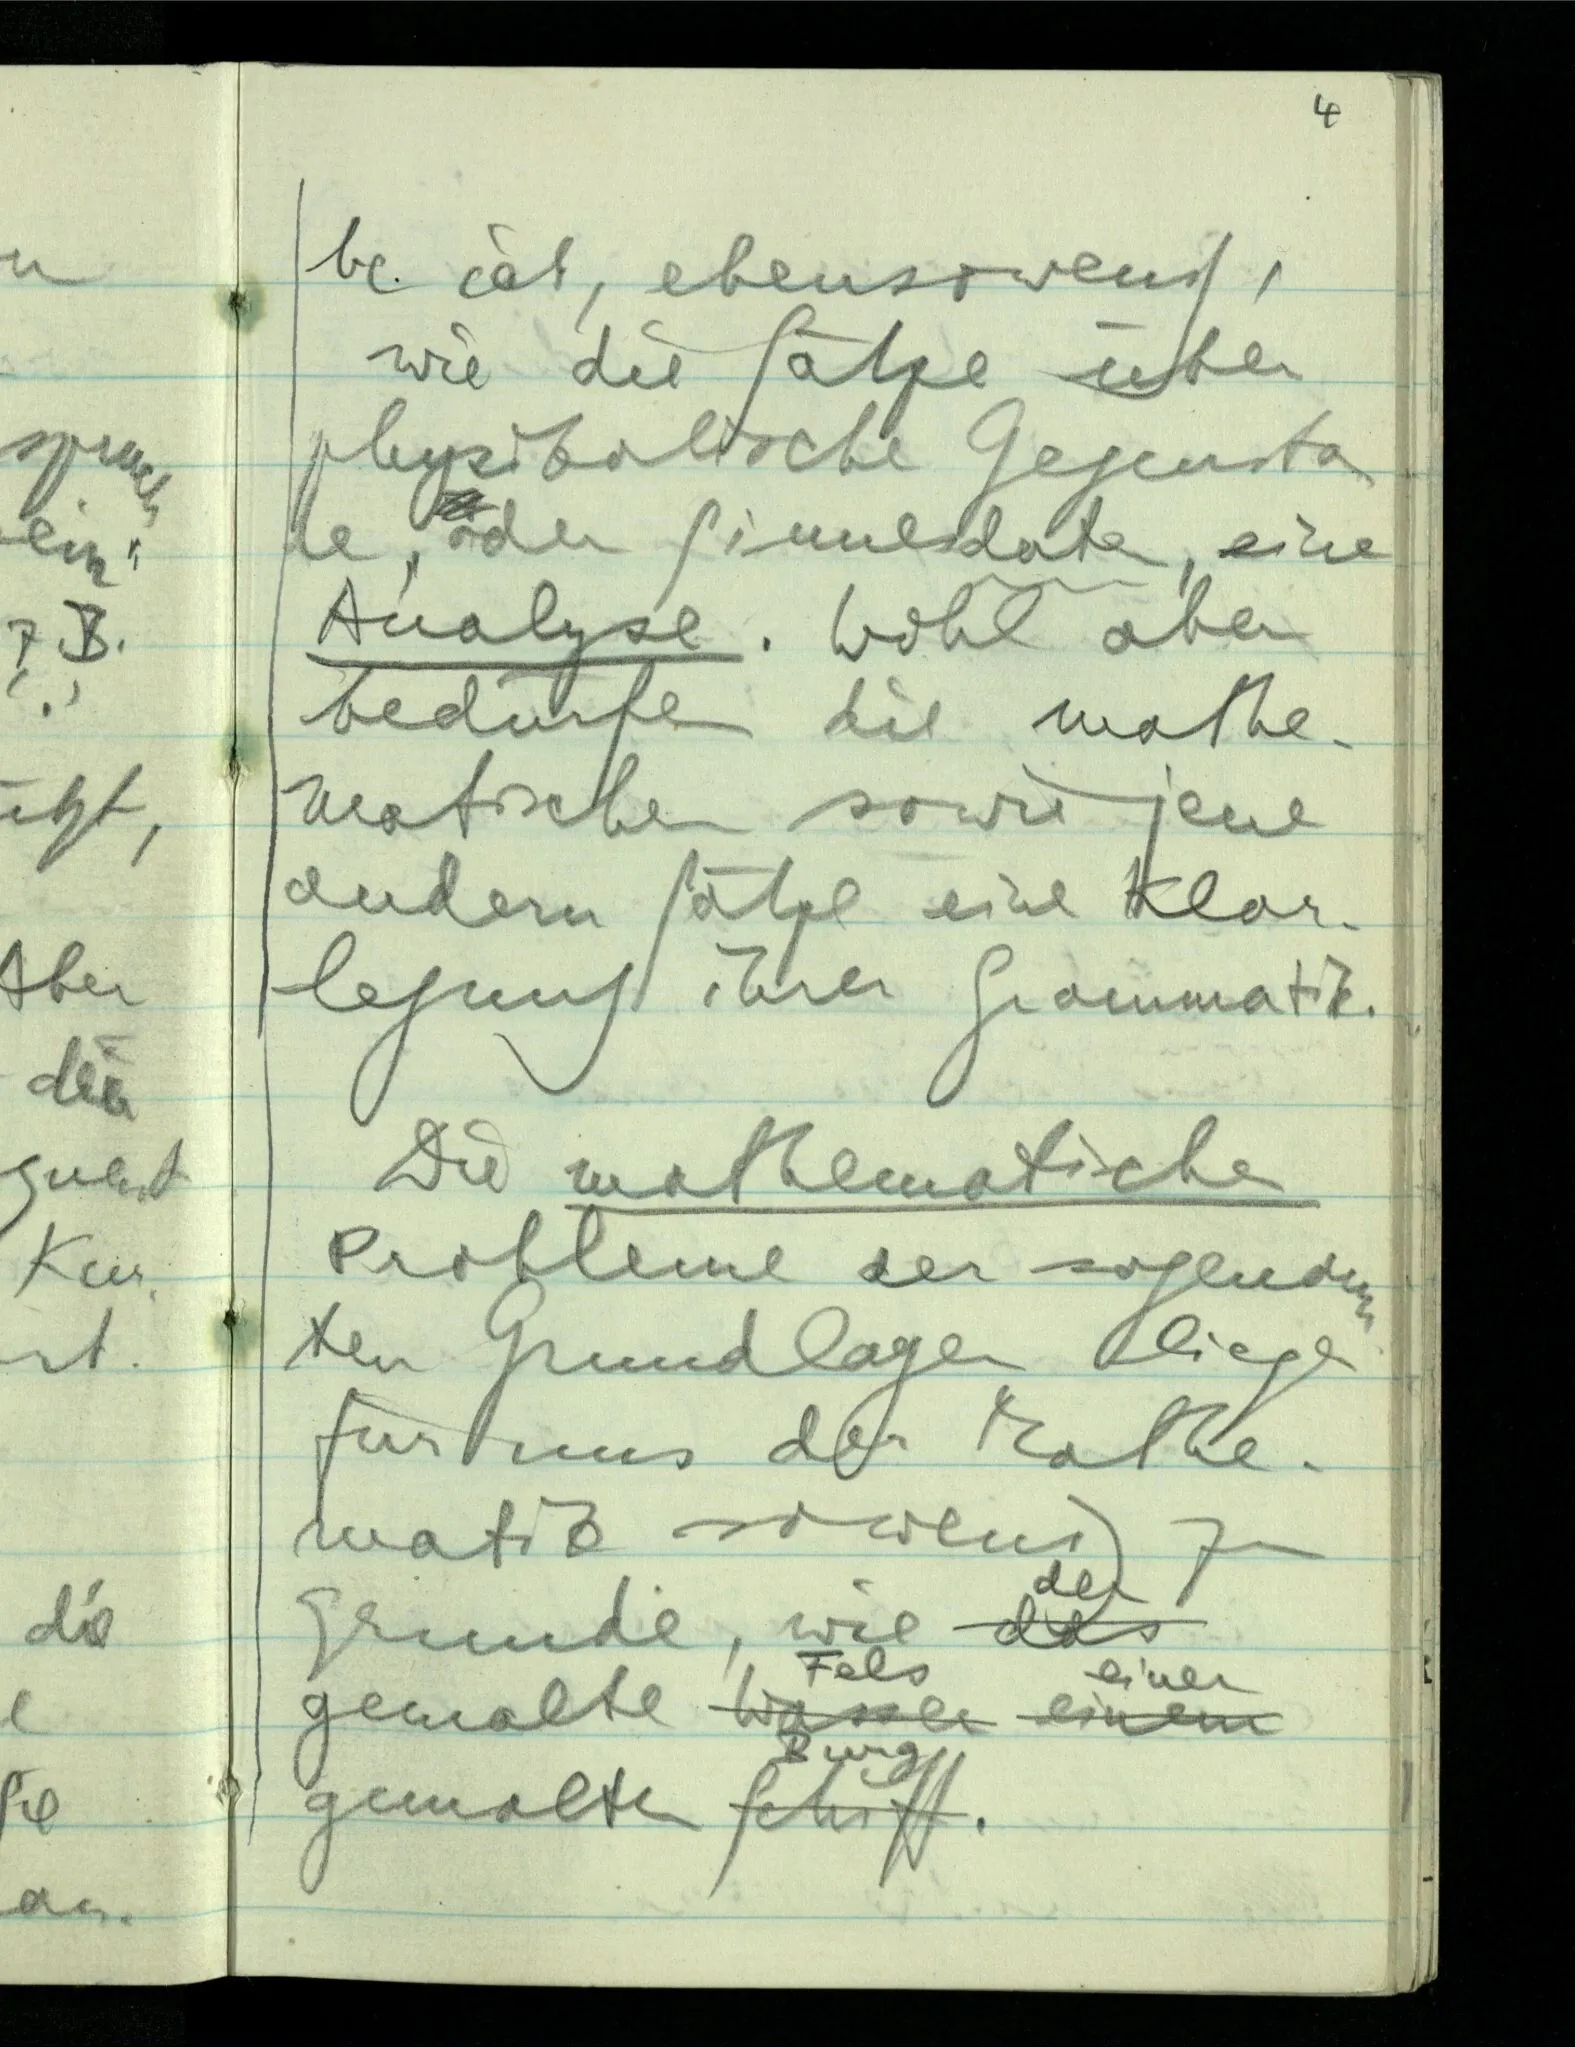 4
be ist, ebensowenig,
wie die Sätze über
physikalische Gegenstä
de, oder Sinnesdaten, eine
Analyse. Wohl aber
bedürfen die mathe-
matischen sowie jene
andern Sätze eine Klar-
legung ihrer Grammatik.
Die mathematischen
Probleme der sogenann
ten Grundlagen liegen
für uns der Mathe-
matik sowenig zu
der
Grunde, wie das
Fels einer
gemalte Wasser einem
Burg
gemalten Schiff.
sprach
ein"
z.B.
Aber
die
Kur.
die
an.